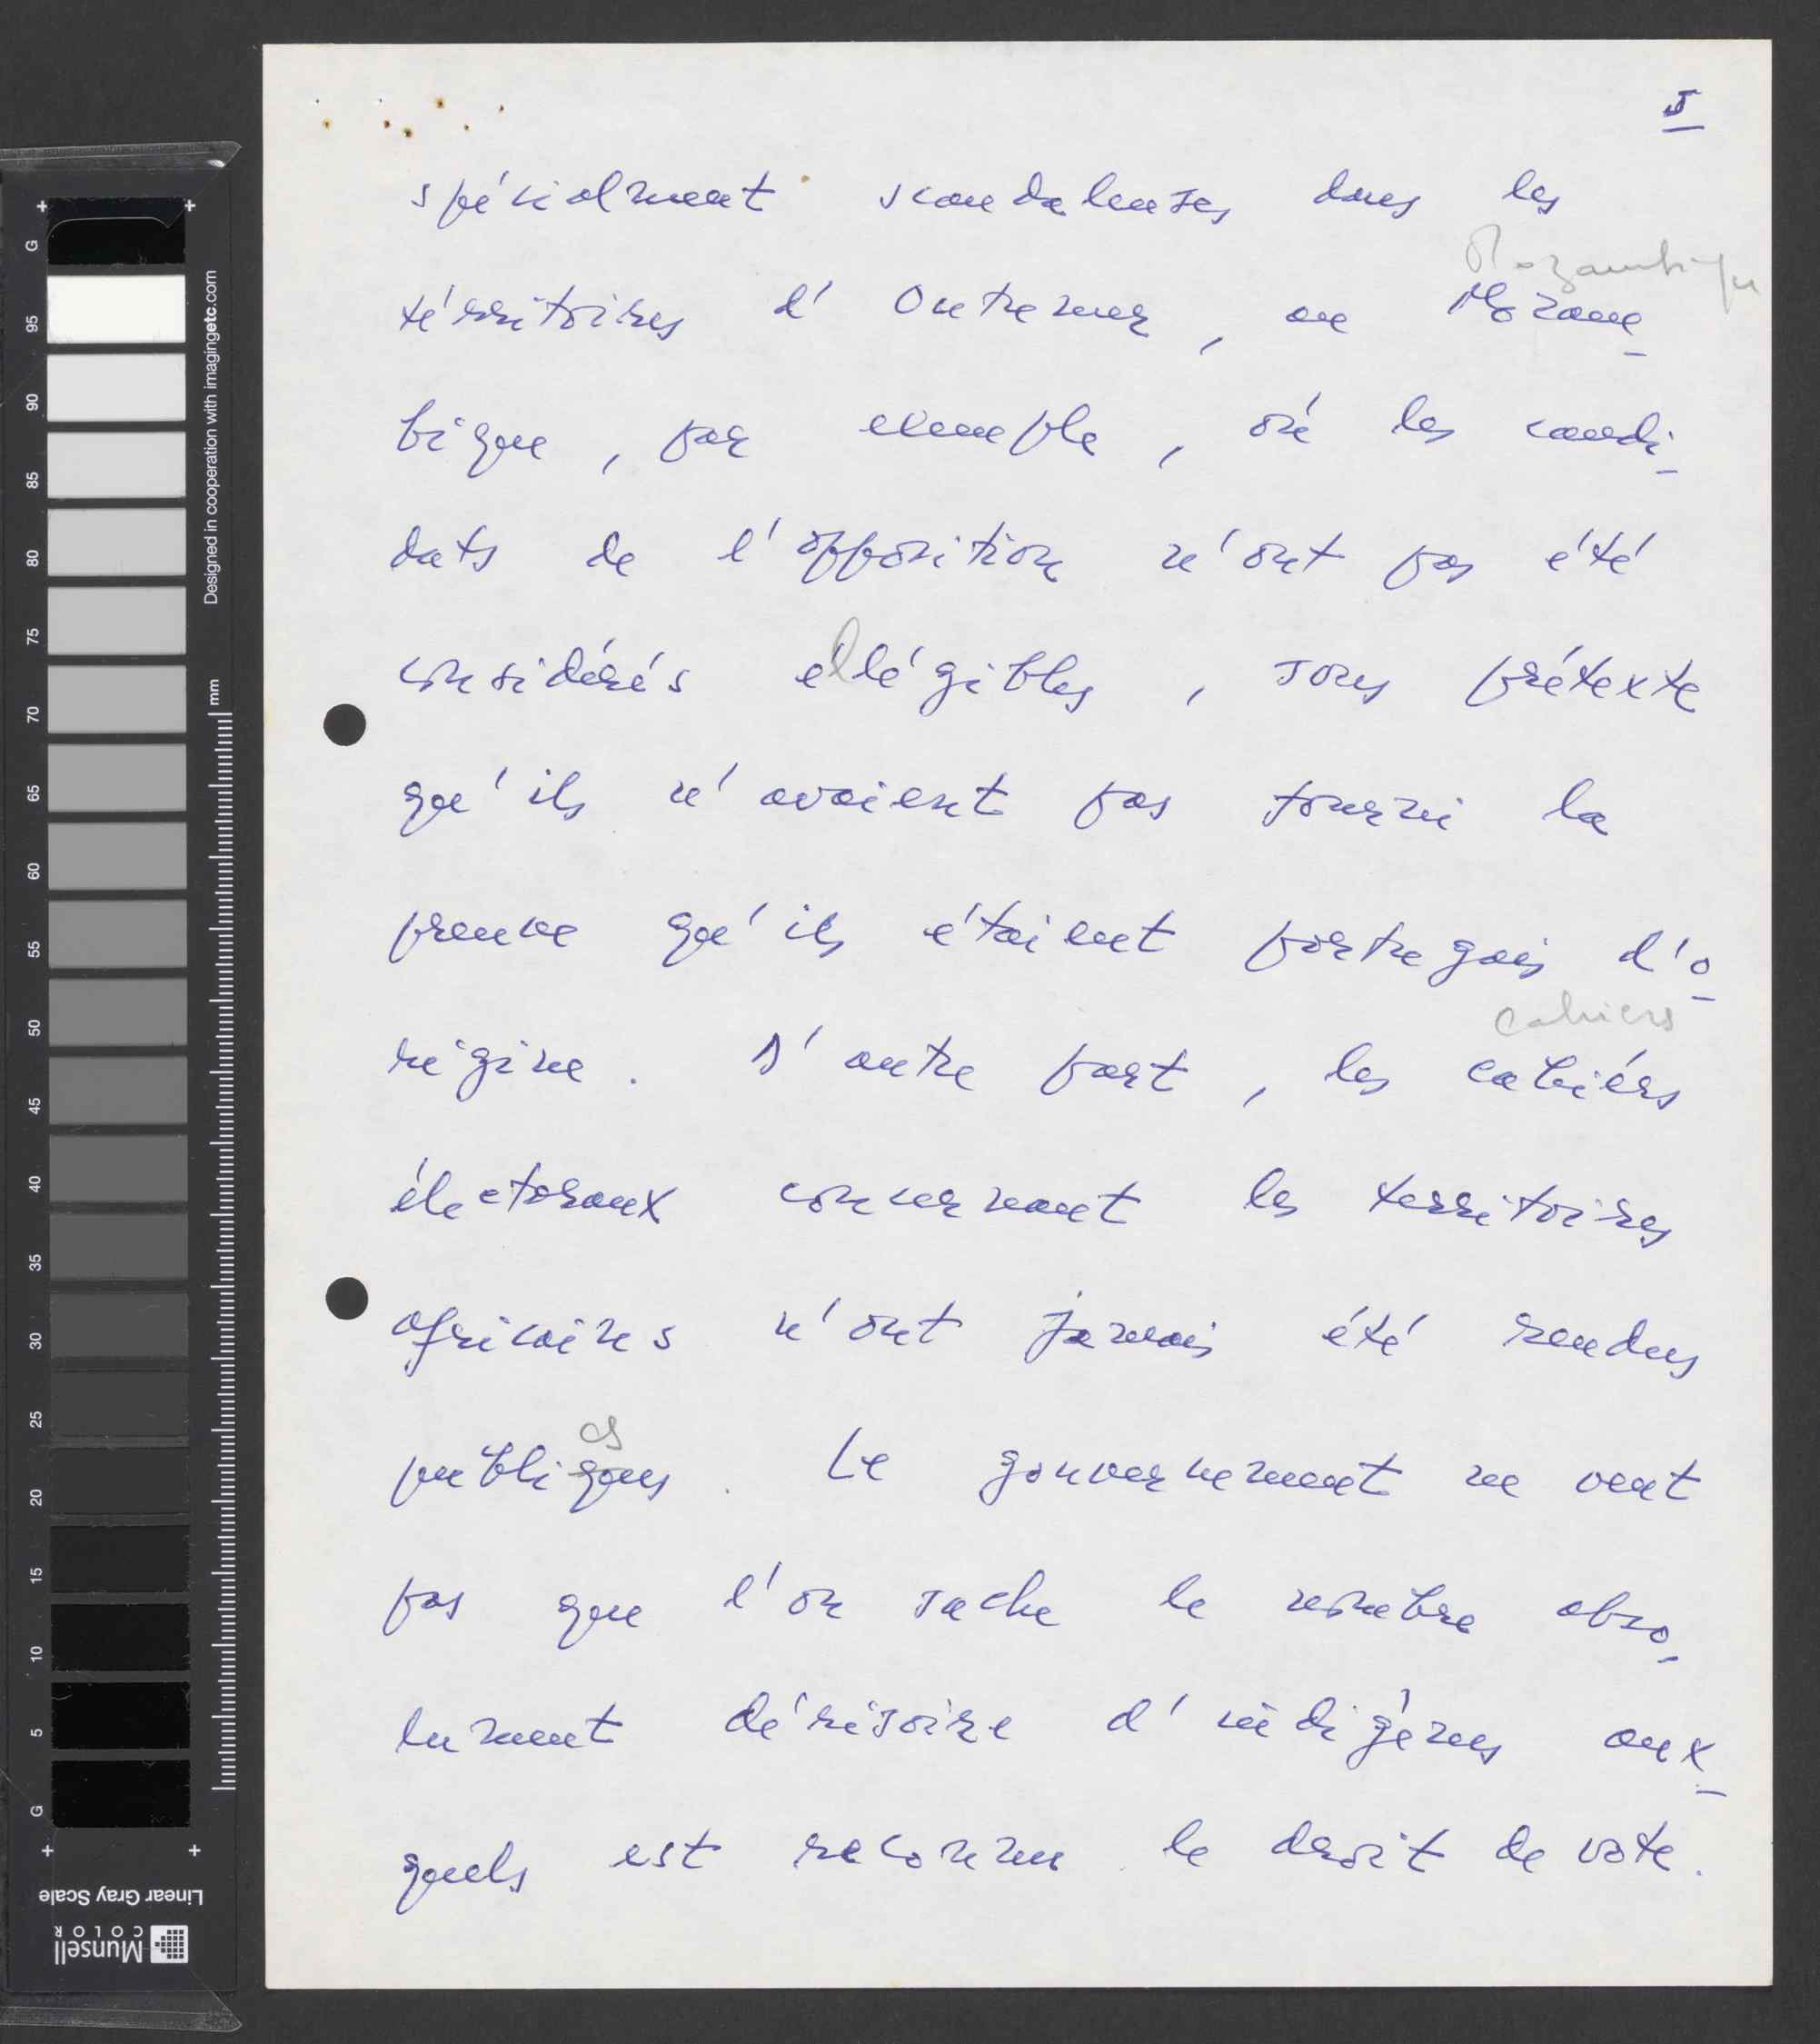 5
spécialment scandaleuses dans les
Mozambique
térritoires d'Outremer, au Mozam-
bique, par exemple, où les candi-
dats de l'opposition n'ont pas été
considérés éllégibles, sous prétexte
qu'ils n'avaient pas fourni la
preuve qu'ils étaient portugais d'o-
cahiers
rigine. D'autre part, les cahiérs
électoraux concernant les territoires
africains n'ont jamais été rendus
cs
publiques. Le gouvernement ne veut
pas que l'on sache le nombre abso-
lument dérisoire d'indigènes aux-
quels est reconnu le droit de vote.
G
95
90
85
80
75
70
65
60
55
50
45
40
35
30
25
20
15
10
5
G
Designed in cooperation with imagingetc.com
mm
Linear Gray Scale
Munsell
COLOR